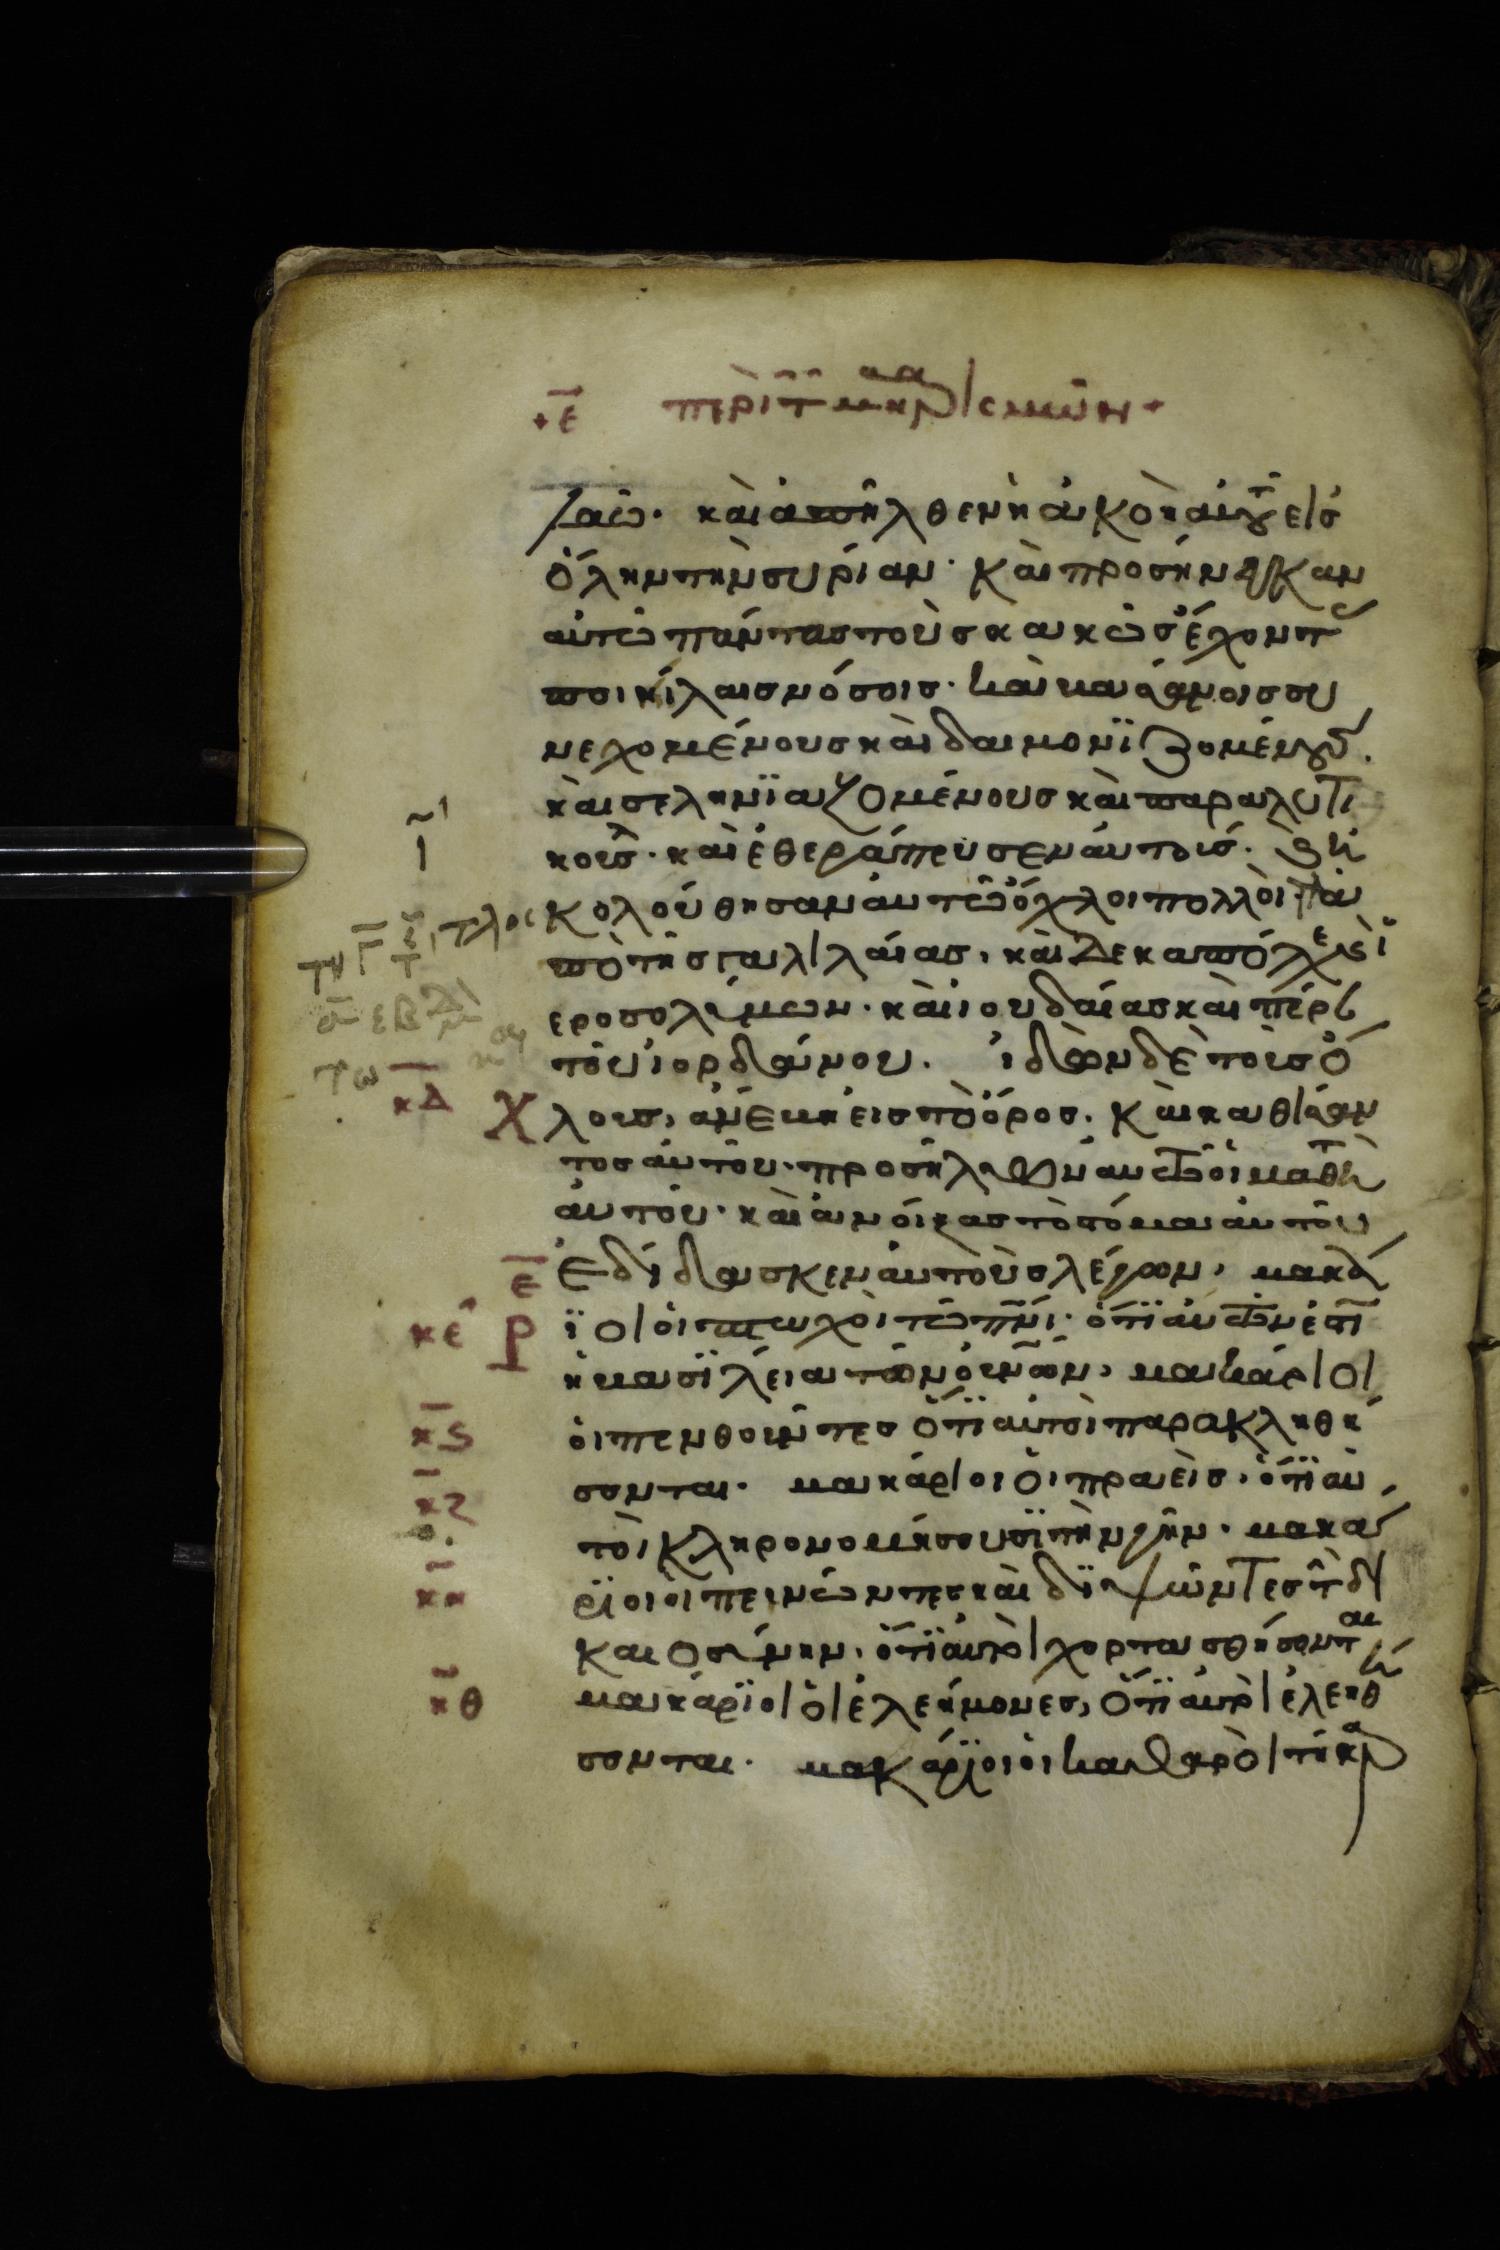 + ε̅ περὶ τῶν μακαρισμῶν +
λαῶ· καὶ ἀπῆλθεν ἡ ἀκοὴ αὐτοῦ εἰσ
ὅλην τὴν συρίαν· καὶ προσήνεγκαν
αὐτῶ πάντασ τοὺσ κακῶσ ἔχοντ
ποικίλαισ νόσοισ· καὶ βασάνοισ συ
νεχομένουσ καὶ δαιμονϊζομένουσ.
καὶ σεληνϊαζομένουσ καὶ παραλυτι
κούσ· καὶ ἐθεράπευσεν αὐτοισ. καὶ ἠ
ι̅
κολούθησαν αὐτῶ ὄχλοι πολλοὶ ἀ
πὸ τῆσ γαλιλαίασ, καὶ δεκαπόλεωσ ϊ
εροσολύμων· καὶ ἰουδαίασ καὶ πέρα
τοῦ ἰορδάνου. ἰδὼν δὲ τοὺσ ὄ
κ̅δ̅
χλουσ, ἀνέβη εἰσ τὸ ὄροσ. καὶ καθίσαν
τοσ αὐτοῦ· προσῆλθον αὐτῶ οἱ μαθητ
αὐτοῦ· καὶ ἀνοίξασ τὸ στόμα αὐτοῦ
ε̅ ἐδίδασκεν αὐτοὺσ λέγων, μακά
κε ρϊοι οἱ πτωχοὶ τῶ π̅ν̅ι· ὅτϊ αὐτῶν ἐστϊ
ἡ βασϊλεία τῶν ο̅υ̅ν̅ων, μακάριοι
κ̅ς̅ οἱ πενθοῦντεσ ὅτϊ αὐτοὶ παρακληθή
κ̅ζ̅ σονται. μακάριοι οἱ πραεῖσ, ὅτϊ αὐ
τοὶ κληρονομήσουσϊ τὴν γῆν. μακά
κ̅η̅ ρϊοι οἱ πεινῶντεσ καὶ δϊψῶντεσ τὴν δϊ
καιοσύνην, ὅτϊ αὐτοὶ χορτασθήσονται
κ̅θ̅ μακάρϊοι οἱ ἐλεήμονεσ, ὅτϊ αὐτοὶ ἐλεηθή
σονται. μακάρϊοι οἱ καθαροὶ τῆ καρ